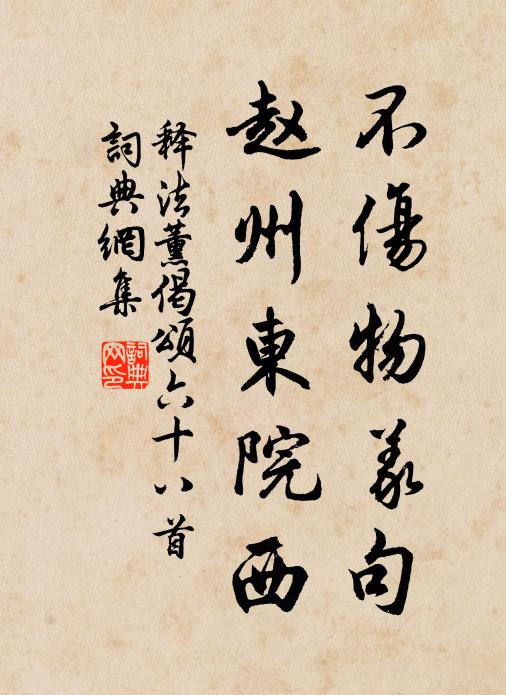 不傷物義句
赵州東院西
释法薰偈頌六十八首
詞典網集
詞典網印